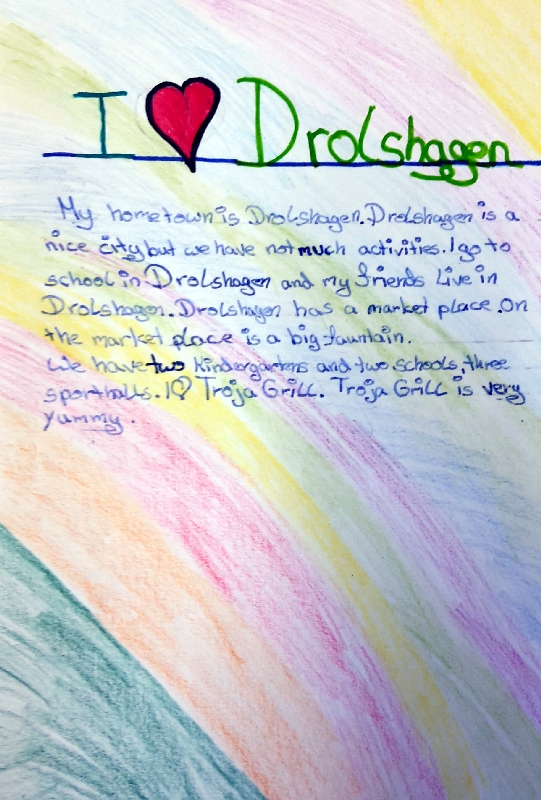 I ♥ Drolshagen
My hometown is Drolshagen. Drolshagen is a
nice city but we have not much activities. I go to
school in Drolshagen and my friends live in
Drolshagen. Drolshagen has a market place. On
the market place is a big fauntain.
We have two Kindergartens and two schools, three
sporthalls. I ♡ Troja Grill. Troja Grill is very
yummy.